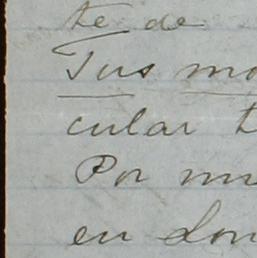 te de
Tus mo
cular t
Por mu
en Lon